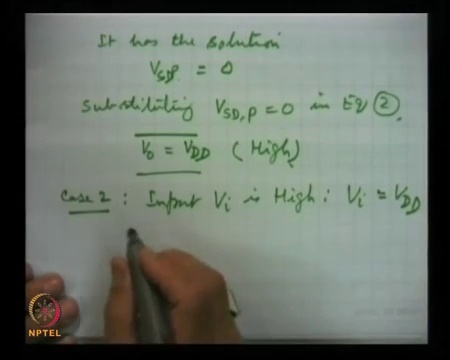 It has the solution
V_SDP = 0
Substituting V_SD,P = 0 in Eq ②.
V_o = V_DD (High)
Case 2 : Input V_i is High : V_i = V_DD
NPTEL